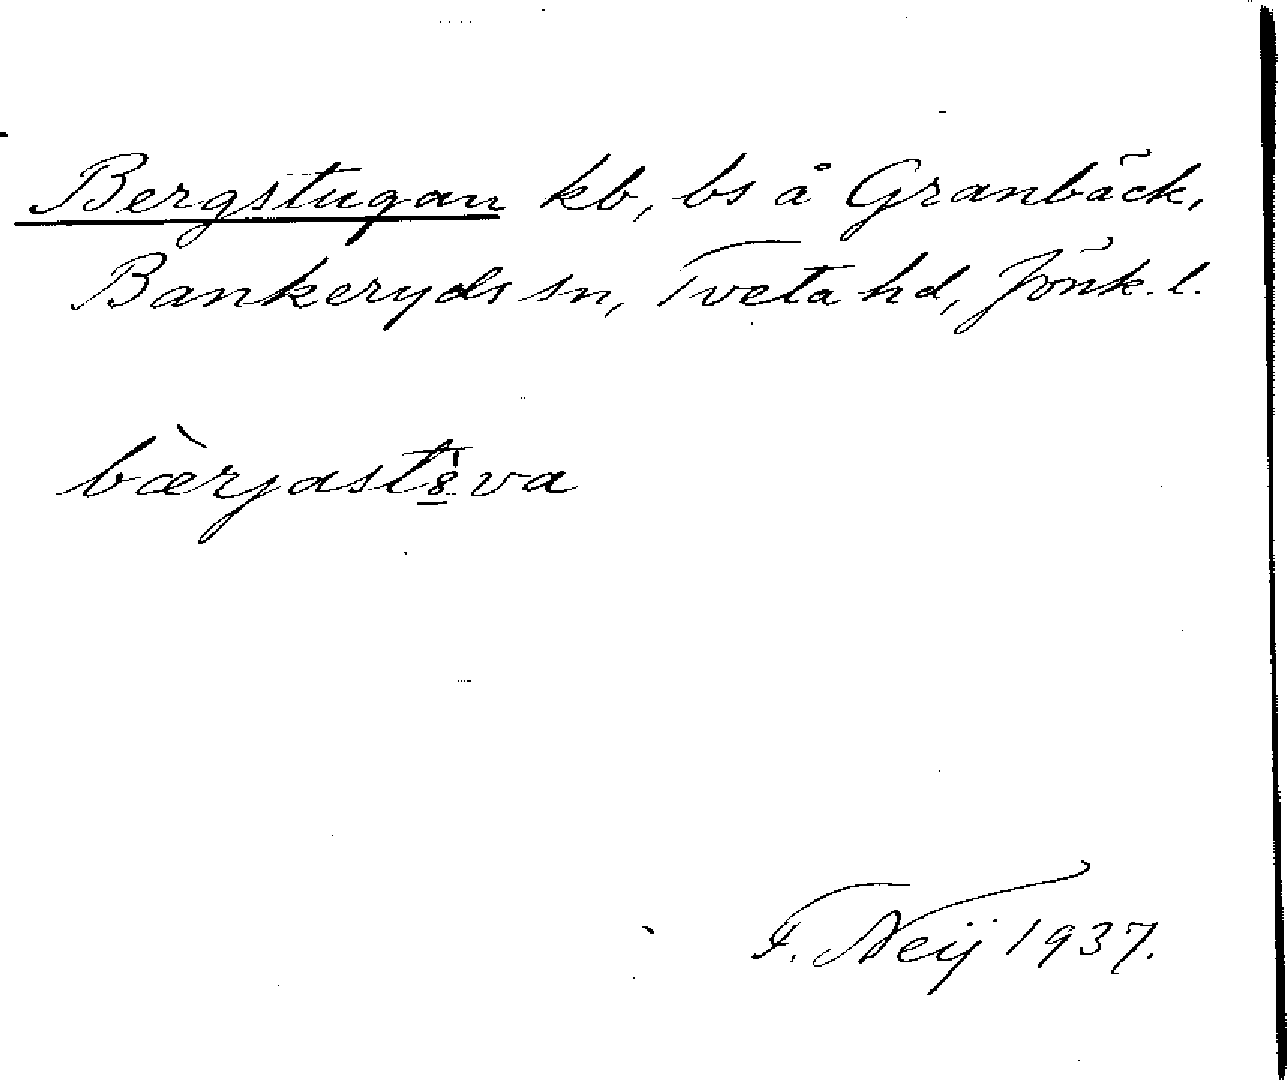 Bergstugan kb, bs å Granbäck,
Bankeryds sn, Tveta hd, Jönk. l.
bærjast
F. Neij 1937.